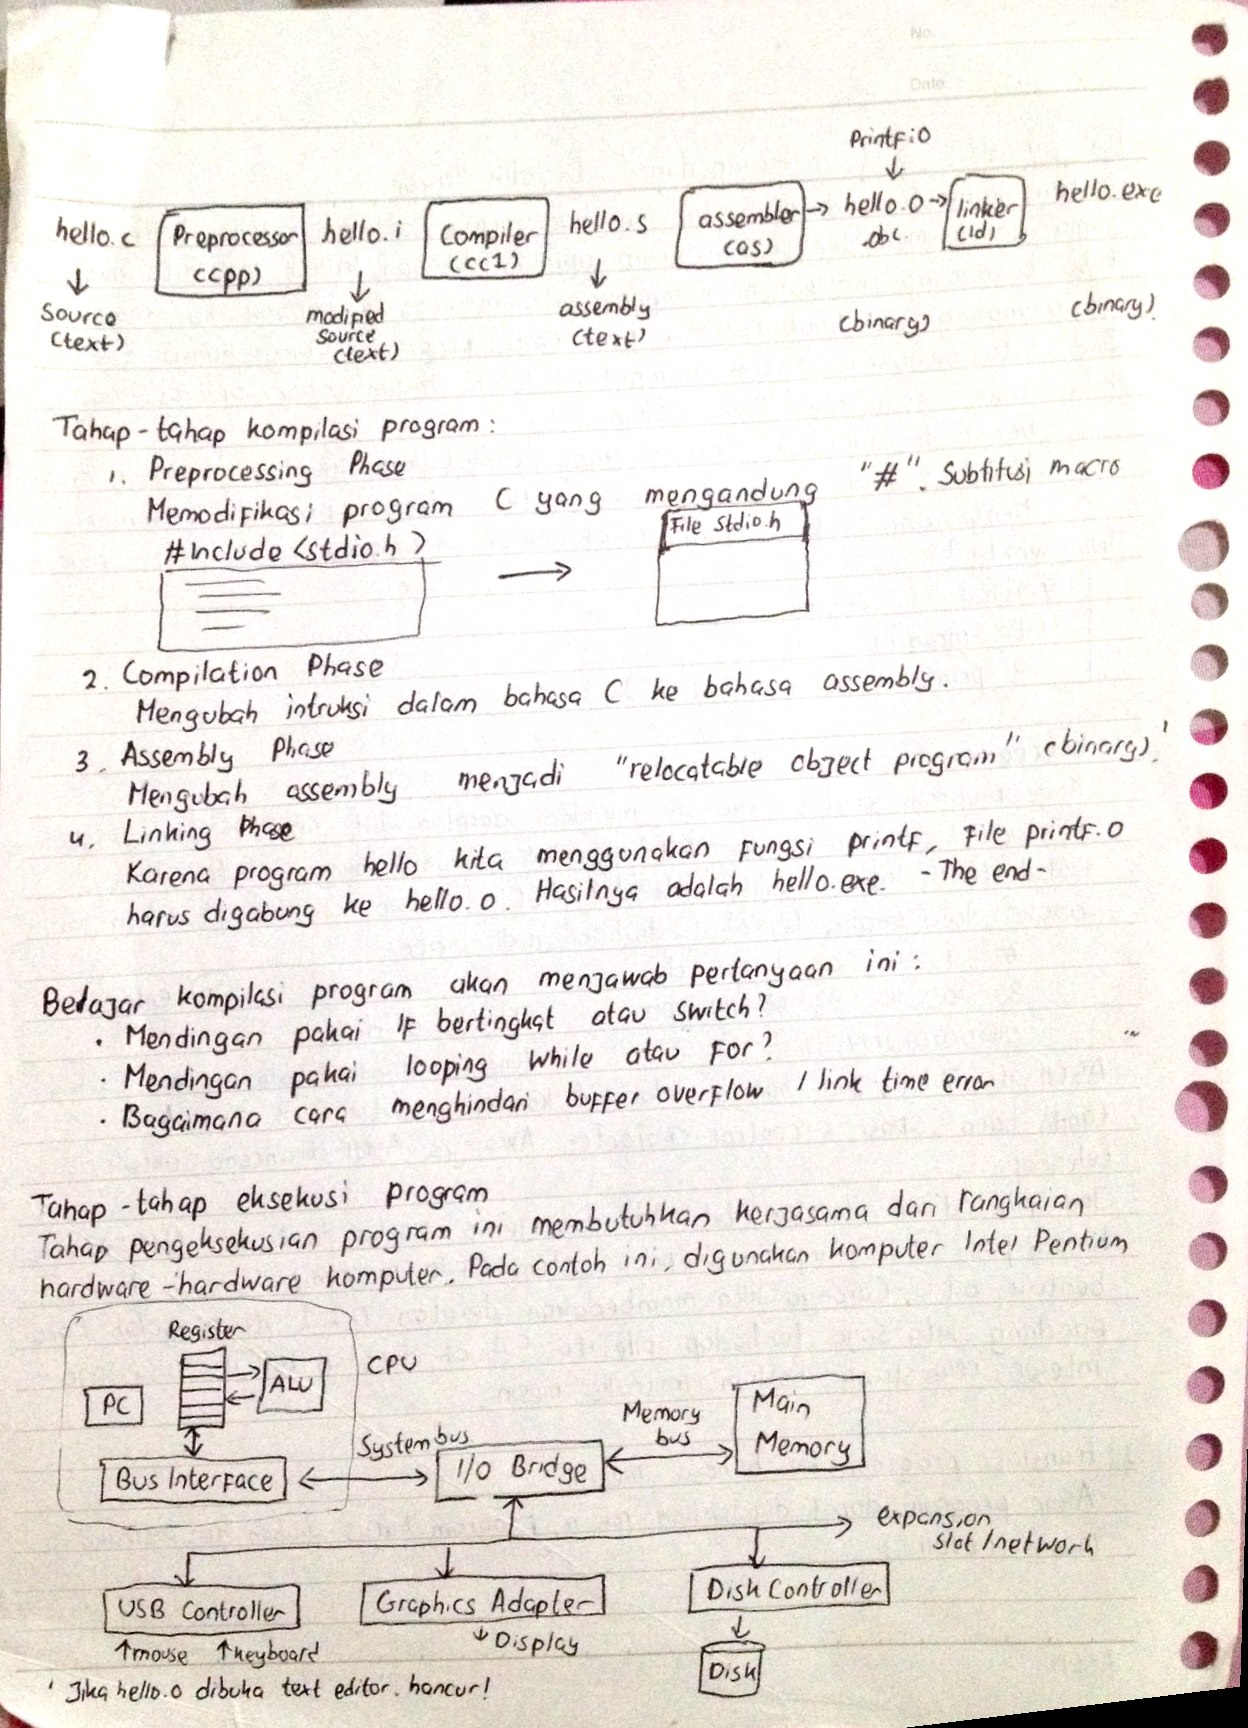 No.
Date
printf.o
hello.c Preprocessor hello.i Compiler hello.s assembler hello.o linker hello.exe
(cpp) (cc1) (as) obc. (ld)
Source modified assembly
(text) source (text) (binary) (binary)
(text)
Tahap-tahap kompilasi program:
1. Preprocessing Phase
Memodifikasi program C yang mengandung "#". Subtitusi macro
#Include <stdio.h> File stdio.h
2. Compilation Phase
Mengubah intruksi dalam bahasa C ke bahasa assembly.
3. Assembly Phase
Mengubah assembly menjadi "relocatable object program" (binary)'.
4. Linking Phase
Karena program hello kita menggunakan fungsi printf, file printf.o
harus digabung ke hello.o. Hasilnya adalah hello.exe. -The end-
Belajar kompilasi program akan menjawab pertanyaan ini:
• Mendingan pakai IF bertingkat atau switch?
• Mendingan pakai looping while atau For?
• Bagaimana cara menghindari buffer overflow / link time error
Tahap-tahap eksekusi program
Tahap pengeksekusian program ini membutuhkan kerjasama dari rangkaian
hardware-hardware komputer. Pada contoh ini, digunakan komputer Intel Pentium
Register
CPU
PC ALU
Main
Memory
Memory
bus
System bus
Bus Interface I/O Bridge
expansion
slot/network
USB Controller Graphics Adapter Disk Controller
mouse keyboard Display
Disk
' Jika hello.o dibuka text editor. hancur!